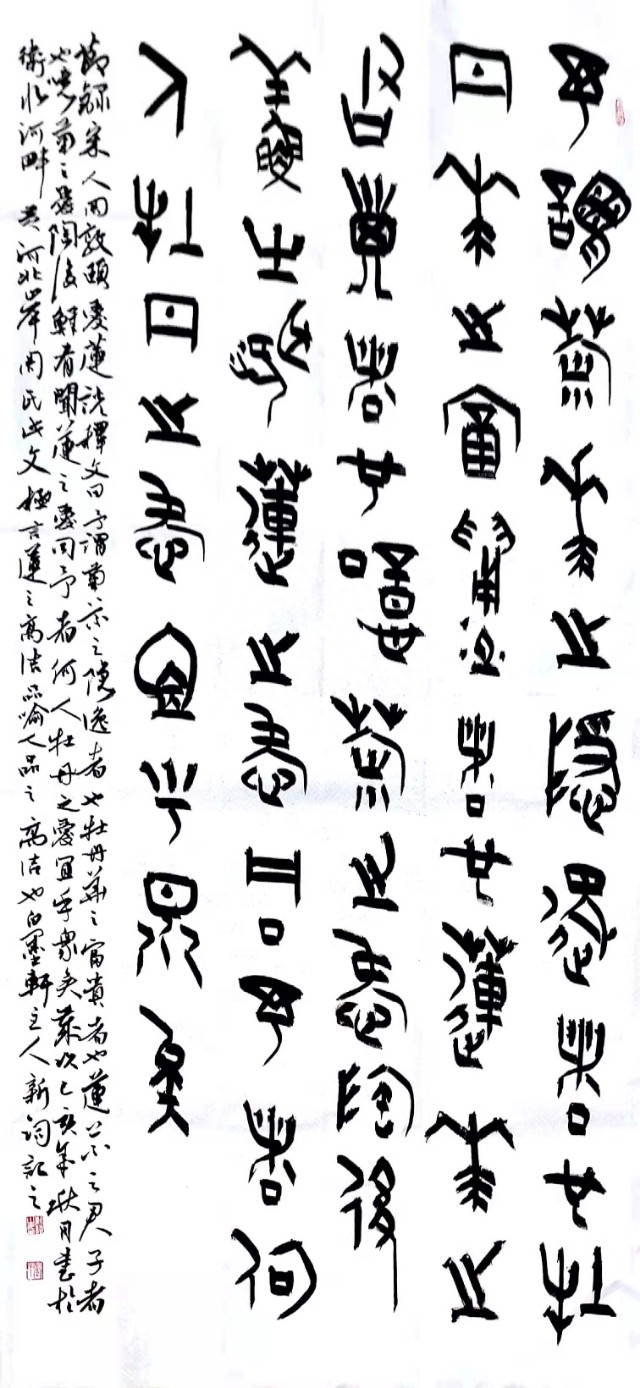 予謂菊華之隱逸者也牡
丹華之富貴者也蓮華之
君子者也噫菊之愛陶後
鮮有聞蓮之愛同予者何
人牡丹之愛宜乎眾矣
節錄宋人周敦頤愛蓮說釋文曰予謂菊華之隱逸者也牡丹華之富貴者也蓮華之君子者
也噫菊之愛陶後鮮有聞蓮之愛同予者何人牡丹之愛宜乎眾矣歲次己亥年秋月書於
衛水河畔黃河北岸周氏此文極言蓮之高潔品喻人品之高潔也白墨軒主人新詞記之